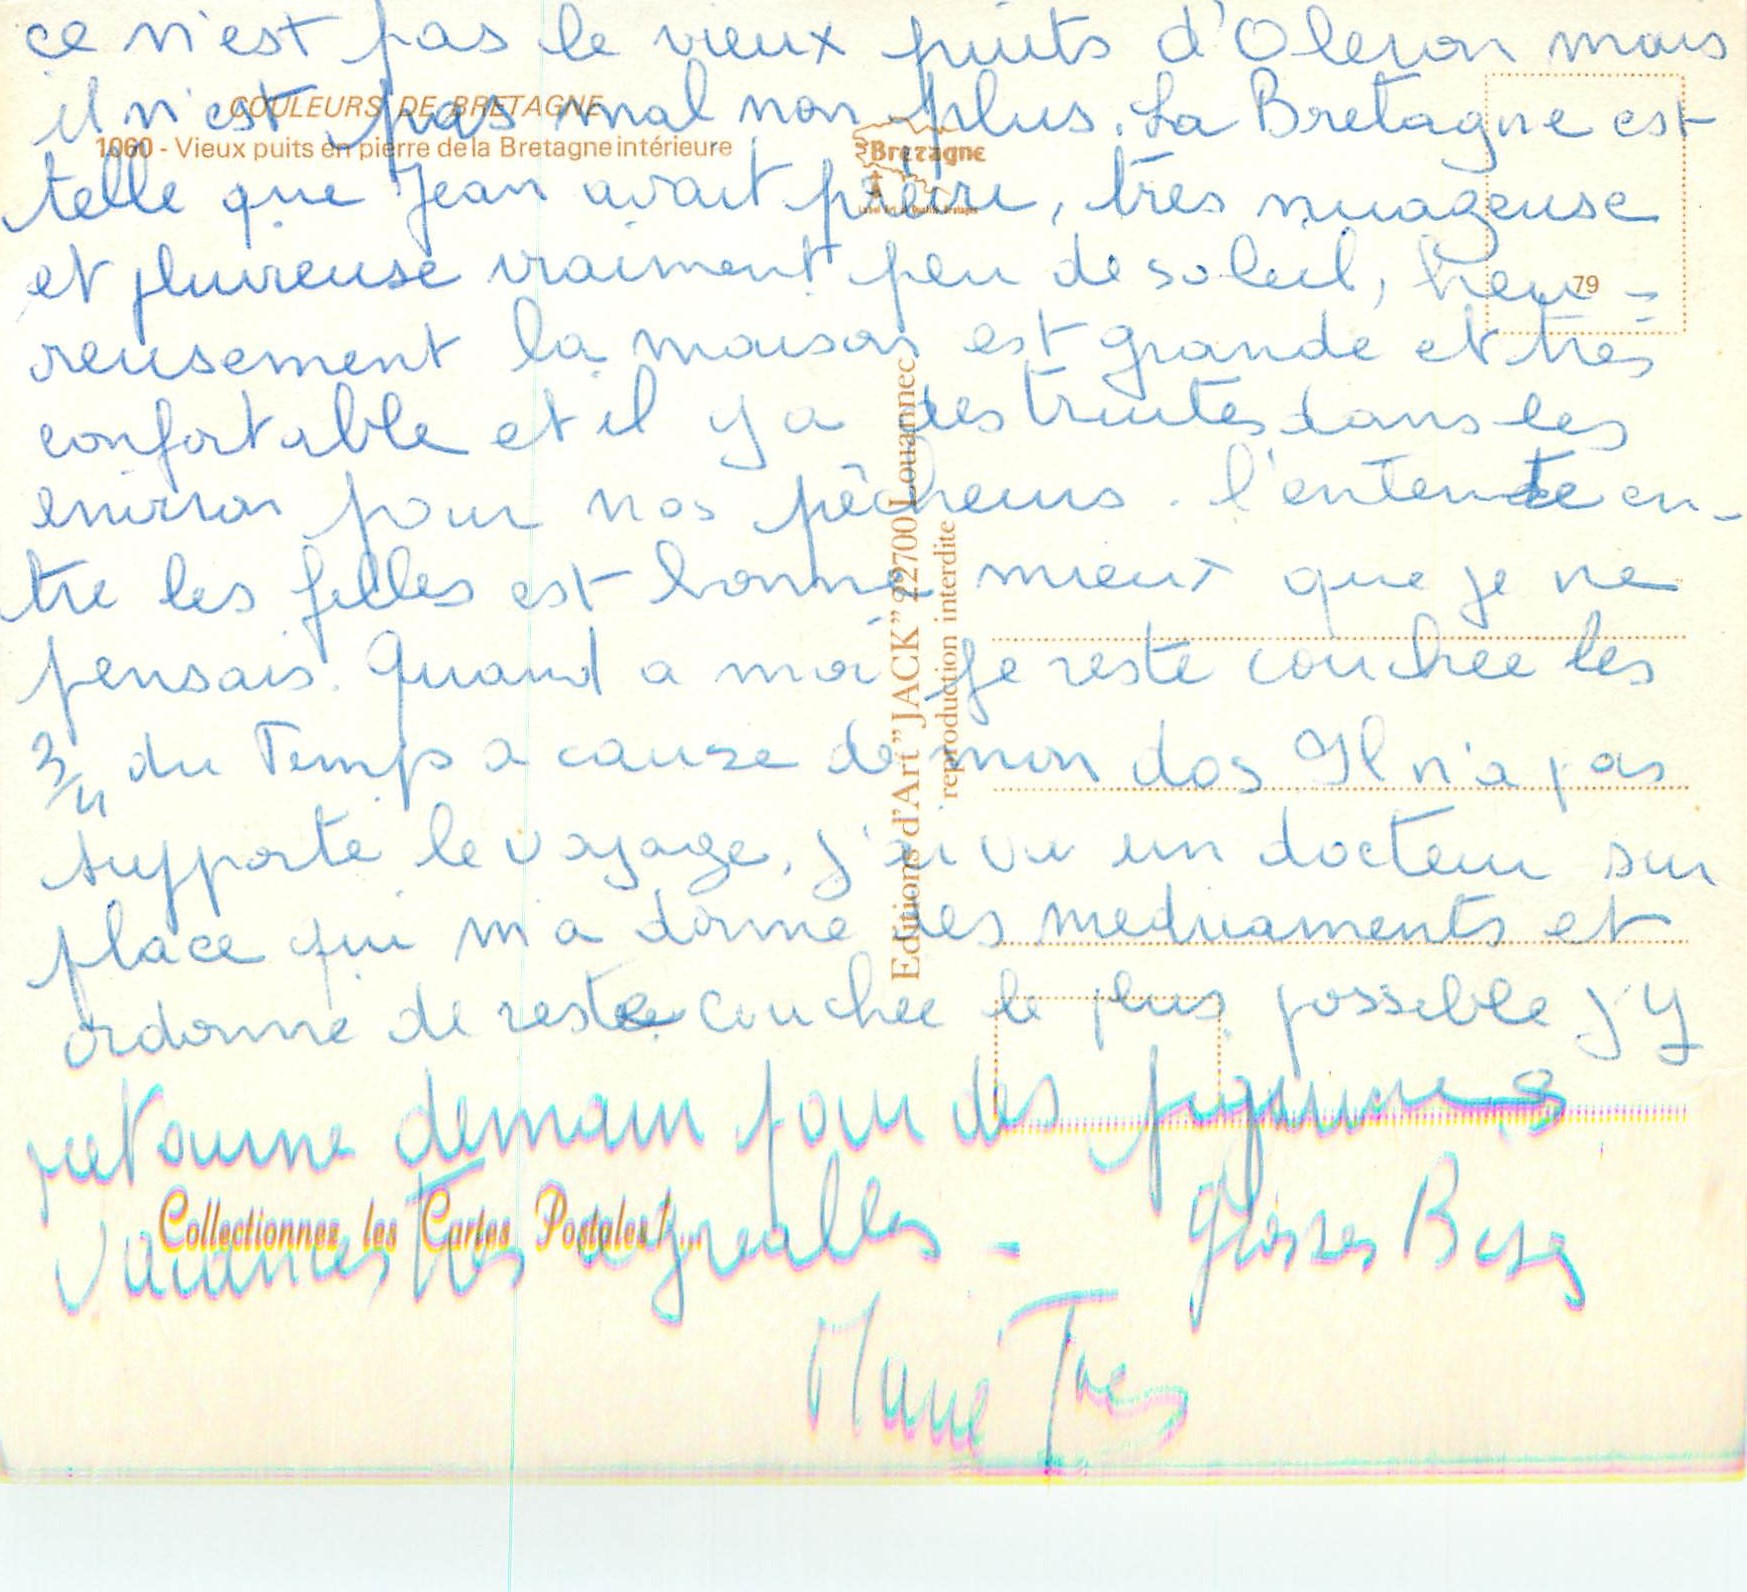 ce n'est pas le vieux puits d'Oleron mais
il n'est pas mal non plus. La Bretagne est
telle que Jean avait prédire, très nuageuse
et pluvieuse vraiment peu de soleil, heu=
reusement la maison est grande et très
confortable et il y a des truites dans les
environ pour nos pêcheurs. l'entente en-
tre les filles est bonne mieux que je ne
pensais. Quand a moi je reste couchée les
3/4 du Temps a cause de mon dos Il n'a pas
supporté le voyage, j'ai vu un docteur sur
place qui m'a donné des medicaments et
ordonné de reste couchée le plus possible J'Y
retourne demain pour des piqures
Vacances très agreables - Grosses Bises
COULEURS DE BRETAGNE
1060 - Vieux puits en pierre de la Bretagne intérieure
Bretagne
79
Editions d'Art "JACK" 22700 Louannec
reproduction interdite
Collectionnez les Cartes Postales !...